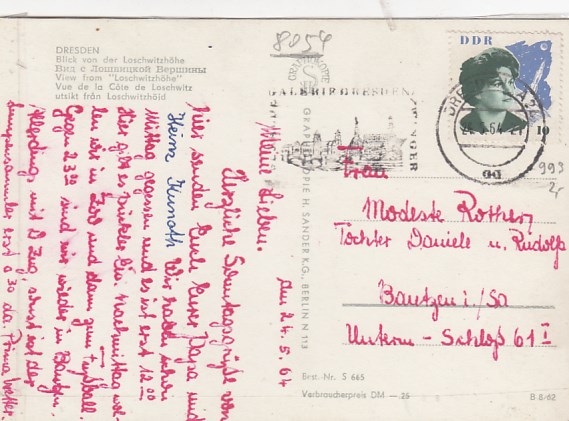 DRESDEN
Blick von der Loschwitzhöhe
Вид с Лошвицкой Вершины
View from "Loschwitzhöhe"
Vue de la Côte de Loschwitz
utsikt från Loschwitzhöid
8054
DDR
10
993
GRAPHOKOPIE H. SANDER K.G., BERLIN N 113
Best. Nr. S 665
Verbraucherpreis DM —.25
B 8/62
Frau
Modeste Rotherz
Töchter Daniele u. Rudolfs
Bautzen i./Sa
Unterm - Schloß 61 I
am 24.5.64
Meine Lieben.
Herzliche Sonntagsgrüße von
hier senden Euch Euer Papa und
Heinz Kunath Wir haben schon
Mittag gegessen und es ist erst 12.00
Hier gibt es Nachmittag
in Zoo und dann zum Fußball.
Gegen 23 sind wir wieder in Bautzen.
Allerdings mit D Zug, sonst ist der
erst 0 30 da. Prima Wetter.